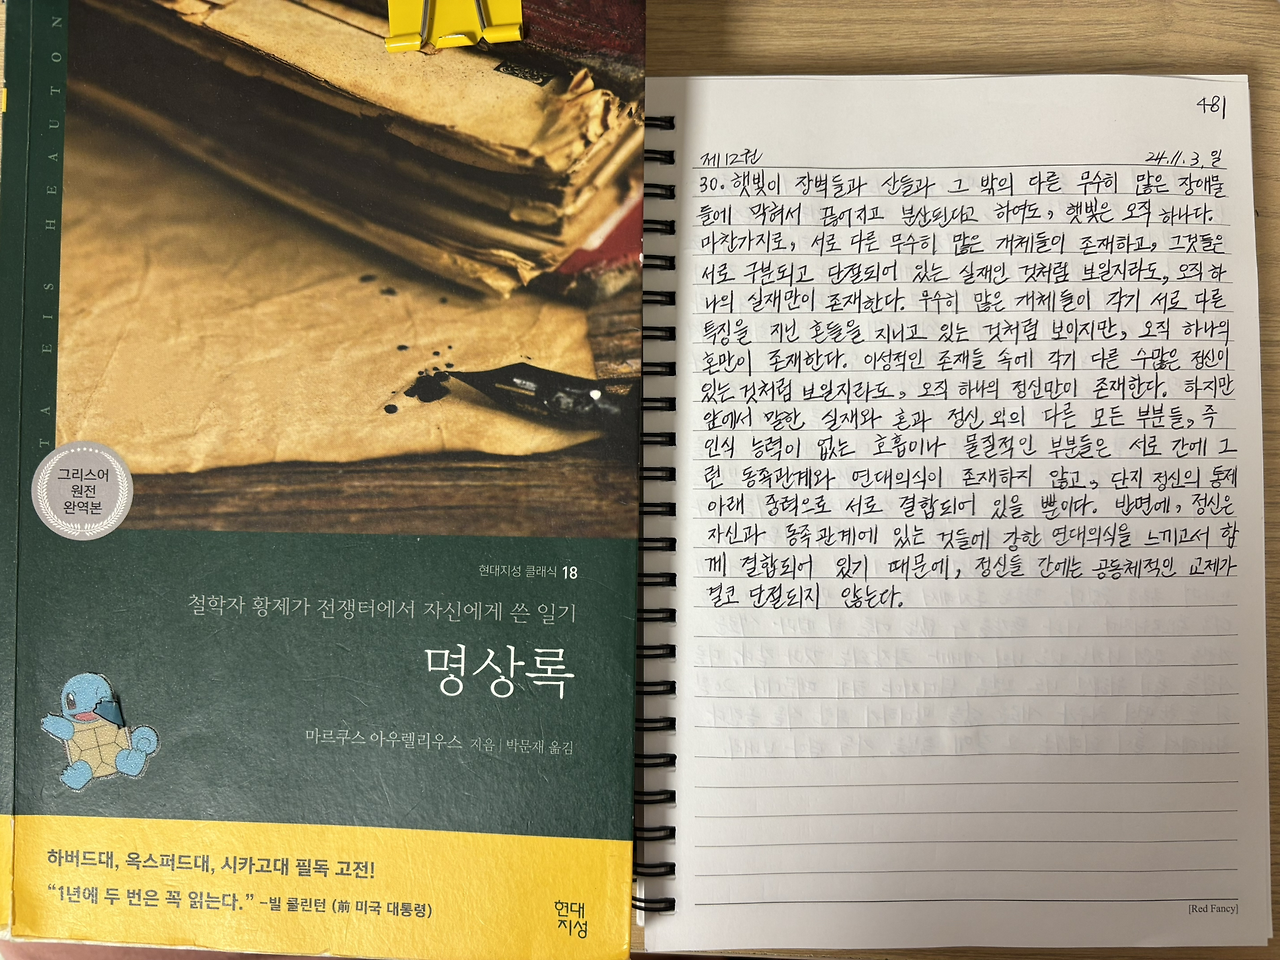 TA EIS HEAUTON
그리스어
원전
완역본
현대지성 클래식 18
철학자 황제가 전쟁터에서 자신에게 쓴 일기
명상록
마르쿠스 아우렐리우스 지음 | 박문재 옮김
하버드대, 옥스퍼드대, 시카고대 필독 고전!
“1년에 두 번은 꼭 읽는다.” –빌 클린턴 (前 미국 대통령)
현대
지성
481
제12권 24.11.3. 일
30. 햇빛이 장벽들과 산들과 그 밖의 다른 무수히 많은 장애물
들에 막혀서 끊어지고 분산된다고 하여도, 햇빛은 오직 하나다.
마찬가지로, 서로 다른 무수히 많은 개체들이 존재하고, 그것들은
서로 구분되고 단절되어 있는 실재인 것처럼 보일지라도, 오직 하
나의 실재만이 존재한다. 무수히 많은 개체들이 각기 서로 다른
특징을 지닌 혼들을 지니고 있는 것처럼 보이지만, 오직 하나의
혼만이 존재한다. 이성적인 존재들 속에 각기 다른 수많은 정신이
있는 것처럼 보일지라도, 오직 하나의 정신만이 존재한다. 하지만
앞에서 말한 실재와 혼과 정신 외의 다른 모든 부분들, 즉
인식 능력이 없는 호흡이나 물질적인 부분들은 서로 간에 그
런 동족관계와 연대의식이 존재하지 않고, 단지 정신의 통제
아래 중력으로 서로 결합되어 있을 뿐이다. 반면에, 정신은
자신과 동족관계에 있는 것들에 강한 연대의식을 느끼고서 함
께 결합되어 있기 때문에, 정신들 간에는 공동체적인 교제가
결코 단절되지 않는다.
[Red Fancy]